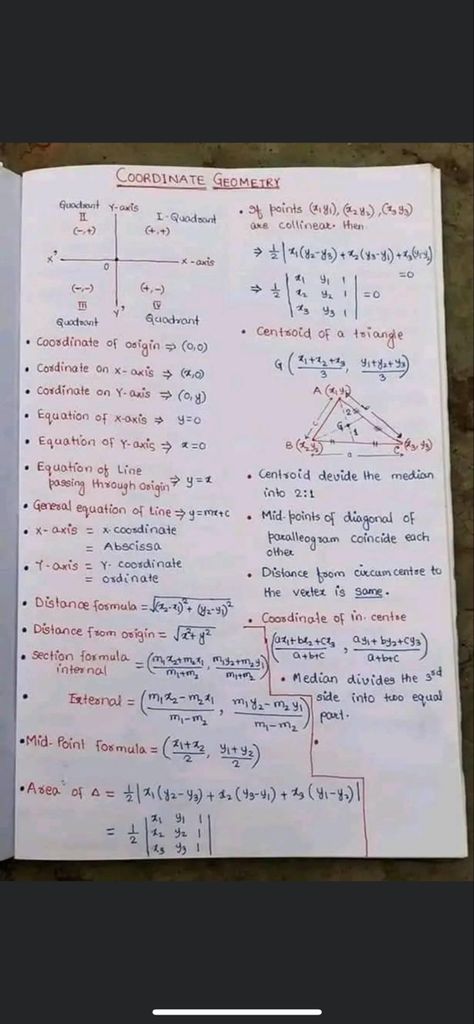 COORDINATE GEOMETRY
Quadrant Y-axis
II
(-,+)
I-Quadrant
(+,+)
X'
O
X-axis
(-,-)
III
Quadrant
(+,-)
IV
Quadrant
Y'
• Coordinate of origin ⇒ (0,0)
• Cordinate on X-axis ⇒ (x,0)
• Cordinate on Y-axis ⇒ (0,y)
• Equation of X-axis ⇒ y=0
• Equation of Y-axis ⇒ x=0
• Equation of Line
passing through origin ⇒ y=x
• General equation of Line ⇒ y=mx+c
• X-axis = x-coordinate
= Abscissa
• Y-axis = Y-coordinate
= ordinate
• Distance formula = √(x₂-x₁)²+(y₂-y₁)²
• Distance from origin = √x²+y²
• Section formula
internal = (m₁x₂+m₂x₁/m₁+m₂, m₁y₂+m₂y₁/m₁+m₂)
• External = (m₁x₂-m₂x₁/m₁-m₂, m₁y₂-m₂y₁/m₁-m₂)
• Mid-Point formula = (x₁+x₂/2, y₁+y₂/2)
• Area of Δ = ½|x₁(y₂-y₃)+x₂(y₃-y₁)+x₃(y₁-y₂)|
= ½ | x₁ y₁ 1 |
| x₂ y₂ 1 |
| x₃ y₃ 1 |
• If points (x₁y₁), (x₂y₂), (x₃y₃)
are collinear then
⇒ ½|x₁(y₂-y₃)+x₂(y₃-y₁)+x₃(y₁-y₂)
=0
⇒ ½ | x₁ y₁ 1 |
| x₂ y₂ 1 | =0
| x₃ y₃ 1 |
• Centroid of a triangle
G (x₁+x₂+x₃/3, y₁+y₂+y₃/3)
A (x₁y₁)
c
b
2
G
1
B (x₂y₂)
C (x₃,y₃)
a
• Centroid devide the median
into 2:1
• Mid-points of diagonal of
paralleogram coincide each
other
• Distance from circumcentre to
the vertex is same.
• Coordinate of in-centre
(ax₁+bx₂+cx₃/a+b+c, ay₁+by₂+cy₃/a+b+c)
• Median divides the 3rd
side into two equal
part.